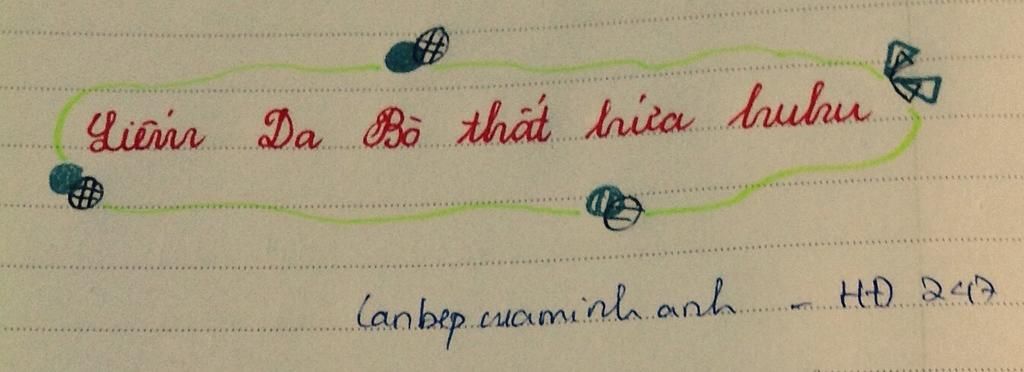 Liếm Da Bò thất hứa huhu
Canbepcuaminhanh - HĐ 247